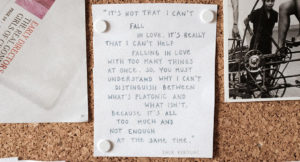 "IT'S NOT THAT I CAN'T
FALL
IN LOVE. IT'S REALLY
THAT I CAN'T HELP
FALLING IN LOVE
WITH TOO MANY THINGS
AT ONCE. SO, YOU MUST
UNDERSTAND WHY I CAN'T
DISTINGUISH BETWEEN
WHAT'S PLATONIC AND
WHAT ISN'T,
BECAUSE IT'S ALL
TOO MUCH AND
NOT ENOUGH
AT THE SAME TIME."
JACK KEROUAC